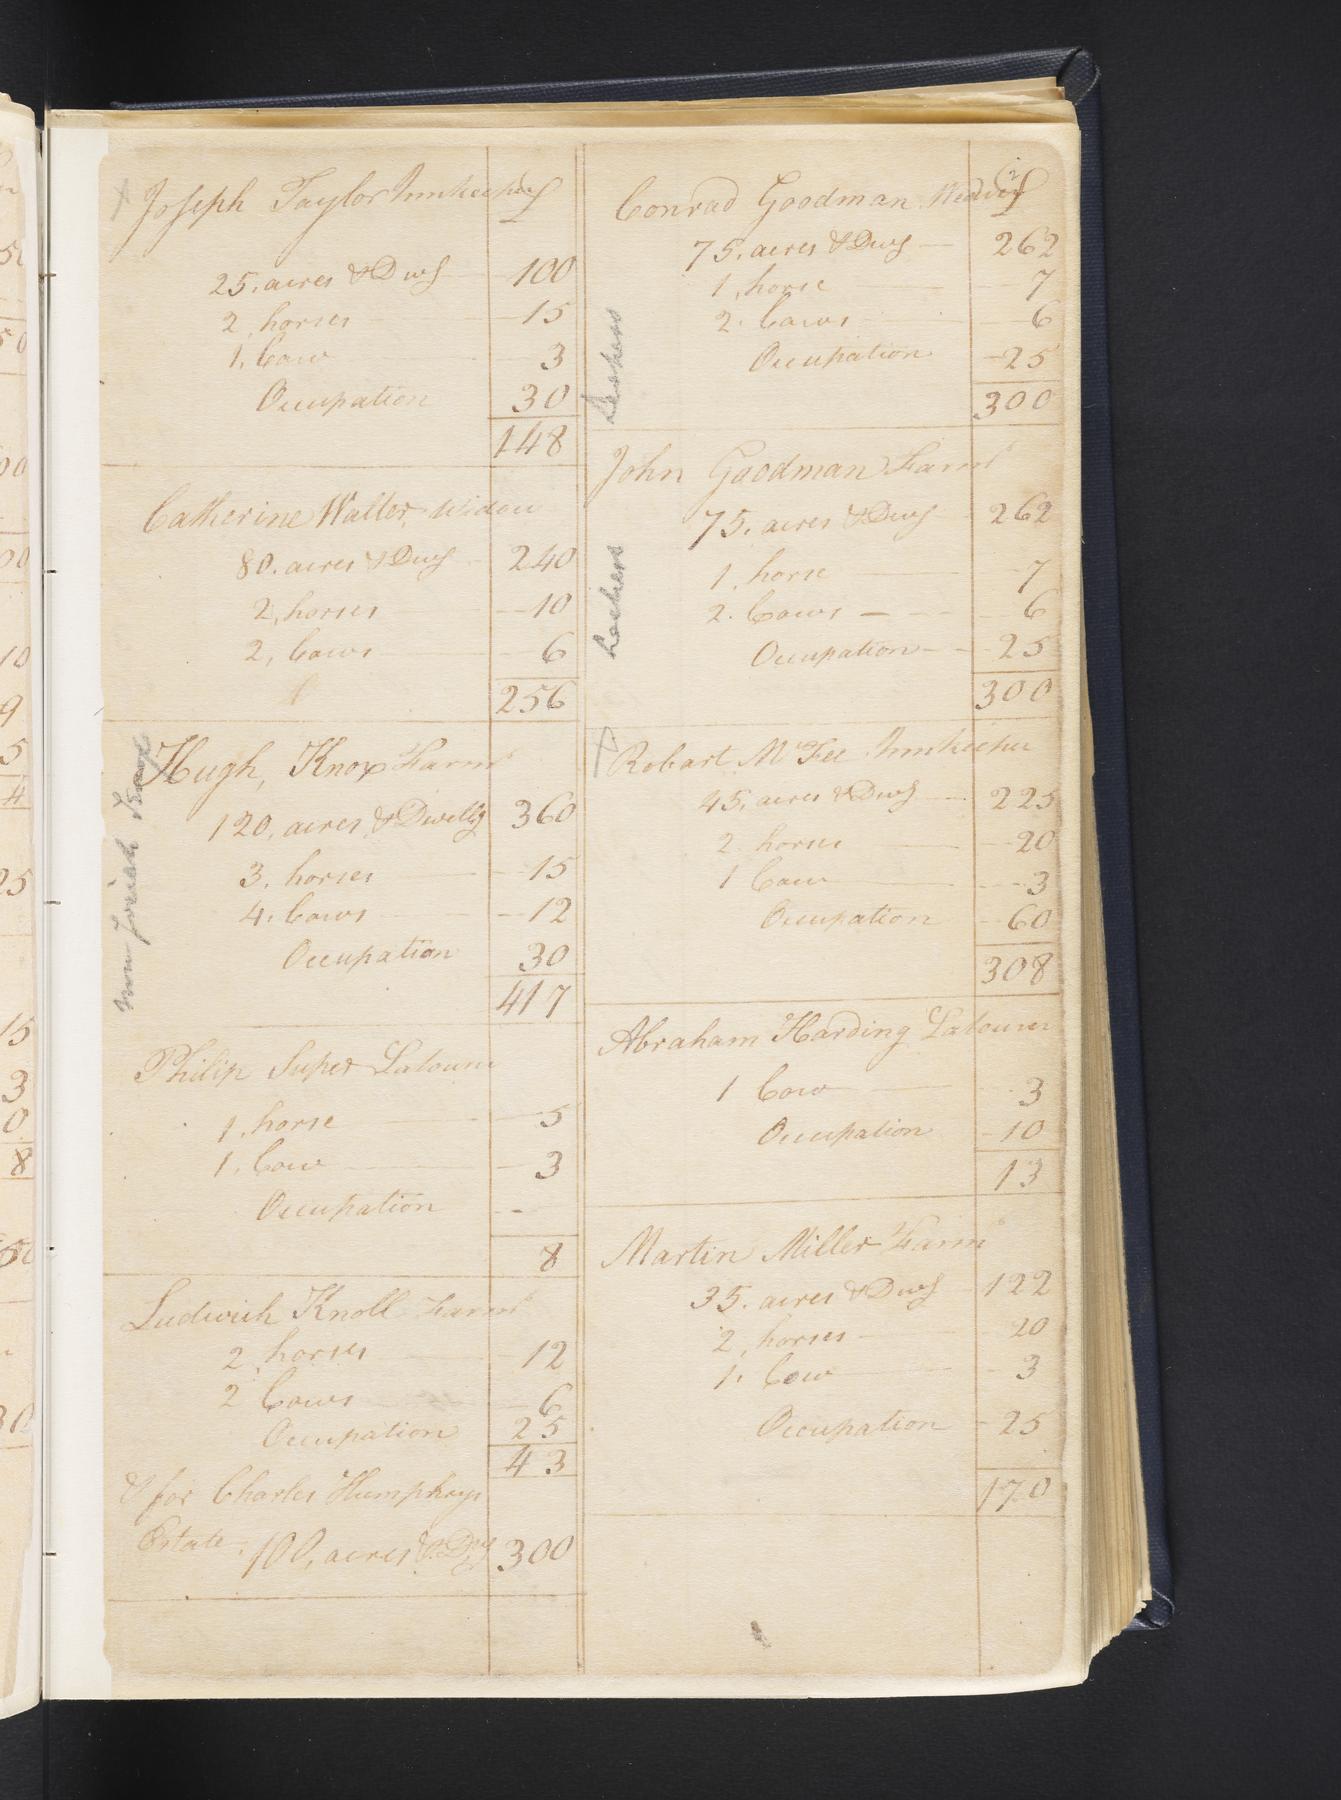 Joseph Taylor Innkeeper £
25. acres & Dwg 100
2 horses 15
1. Cow 3
Occupation 30
148
Catherine Walter, Widow
80. acres & Dwg 240
2, horses 10
2, Cows 6
256
Hugh, Knox Farmr
120, acres & Dwellg 360
3. horses 15
4. Cows 12
Occupation 30
417
Philip Super Labourr
1. horse 5
1. Cow 3
Occupation -
8
Ludwich Knoll Farmr
2 horses 12
2 Cows 6
Occupation 25
43
& for Charles Humphreys
Estate. 100, acres & Dwg 300
Conrad Goodman £
75. acres & Dwg 262
1, horse 7
2. Cows 6
Occupation 25
300
John Goodman Farmr
75. acres & Dwg 262
1. horse 7
2. Cows 6
Occupation 25
300
Robart McFee Innkeeper
45. acres & Dwg 225
2 horses 20
1 Cow 3
Occupation 60
308
Abraham Harding Labourer
1 Cow 3
Occupation 10
13
Martin Miller Farmr
35. acres & Dwg 122
2, horses 20
1. Cow 3
Occupation 25
170